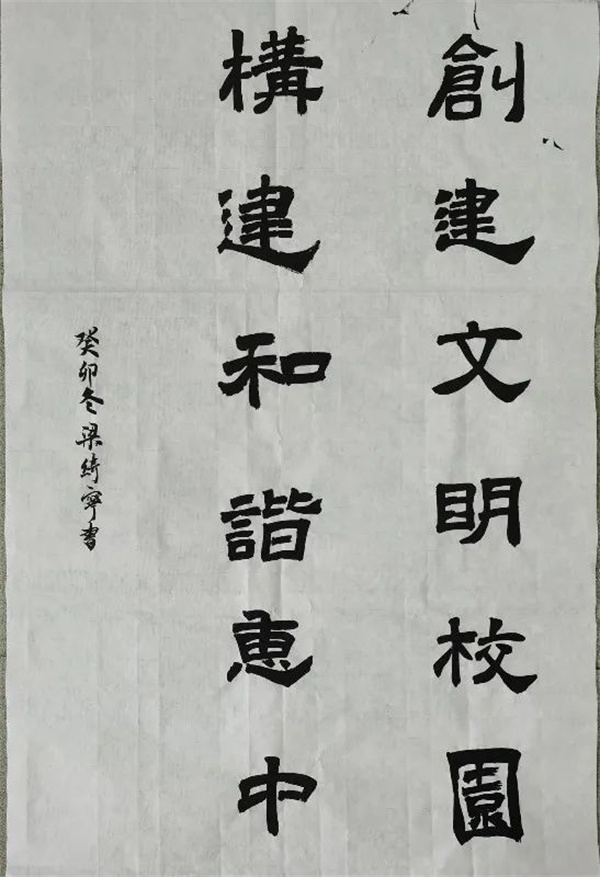 創建文明校園
構建和諧惠中
癸卯冬梁綺寧書